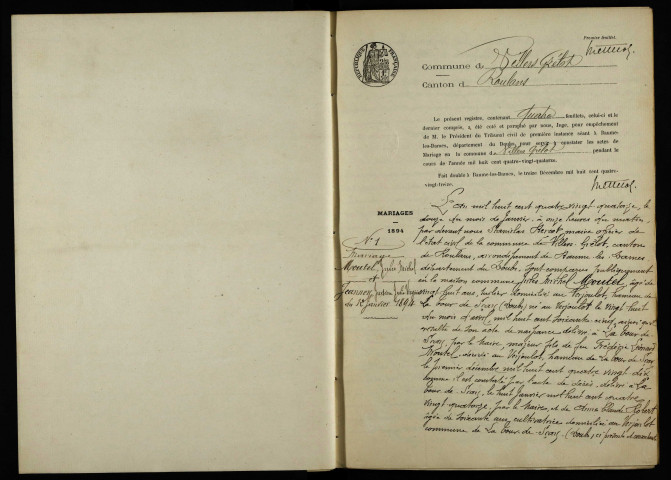 Premier feuillet
RÉPUBLIQUE FRANÇAISE
Commune de Villers Grélot
Canton d Roulans
Le présent registre, contenant quatre feuillets, celui-ci et le
dernier compris, a été coté et paraphé par nous, Juge, pour empêchement
de M. le Président du Tribunal civil de première instance séant à Baume-
les-Dames, département du Doubs, pour servir à constater les actes de
Mariage en la commune de Villers Grélot pendant le
cours de l'année mil huit cent quatre-vingt-quatorze.
Fait double à Baume-les-Dames, le treize Décembre mil huit cent quatre-
vingt-treize.
MARIAGES
1894
N° 1
Mariage
Moutel, Jules Michel
et
Jeannin
du 12 janvier 1894
L'an mil huit cent quatre vingt quatorze, le
douze du mois de Janvier à onze heures du matin,
par devant nous Stanislas maire officier de
l'état civil de la commune de Villers Grélot, canton
de Roulans, arrondissement de Baume les Dames,
département du Doubs, sont comparus publiquement
en la maison commune Jules Michel Moutel, âgé de
vingt huit ans, domicilié au hameau de
La Tour de Sçay, (Doubs) né au le vingt huit
du mois d'avril mil huit cent soixante cinq, ainsi qu'il
résulte de son acte de naissance délivré à La Tour de
Sçay, par le Maire, majeur fils de feu Frédéric
Moutel, décédé au hameau de La Tour de Sçay
le premier décembre mil huit cent quatre vingt dix
comme il est constaté par l'acte de décès délivré à La
Tour de Sçay, le huit Janvier mil huit cent quatre
vingt quatorze, par le Maire, et de Claude
âgée de soixante ans, cultivatrice domiciliée au
commune de La Tour de Sçay (Doubs), ci présente et consentante